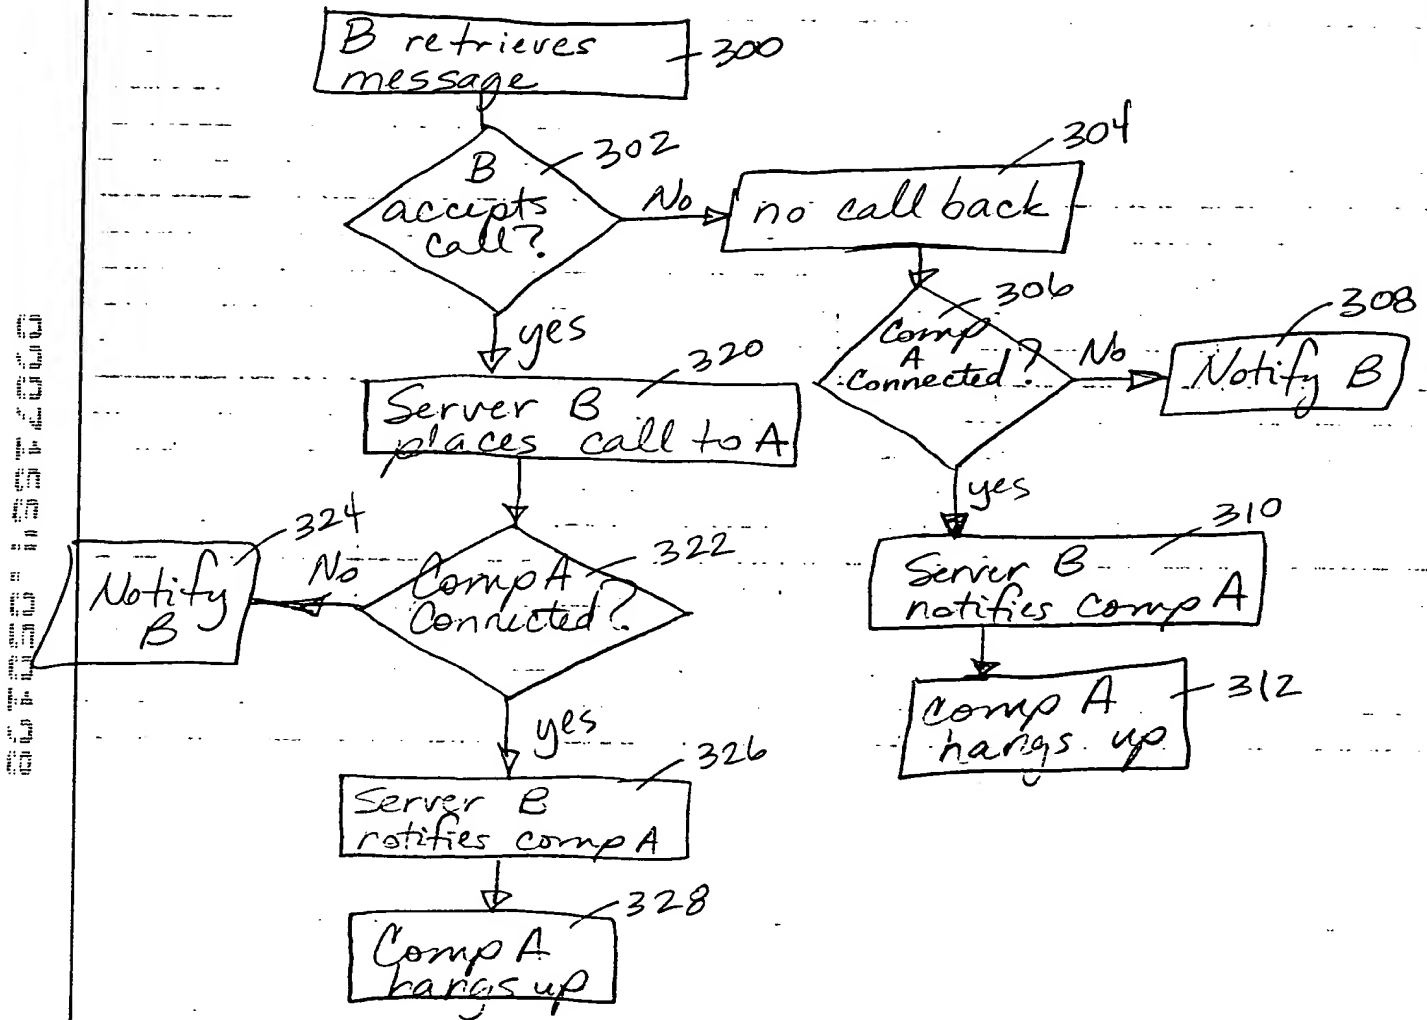 B retrieves
message
300
B
accepts
call?
302
No
no call back
304
yes
Comp
A
Connected?
306
No
Notify B
308
Server B
places call to A
320
yes
Server B
notifies comp A
310
Comp A
Connected?
322
No
Notify
B
324
comp A
hangs up
312
yes
Server B
notifies comp A
326
Comp A
hangs up
328